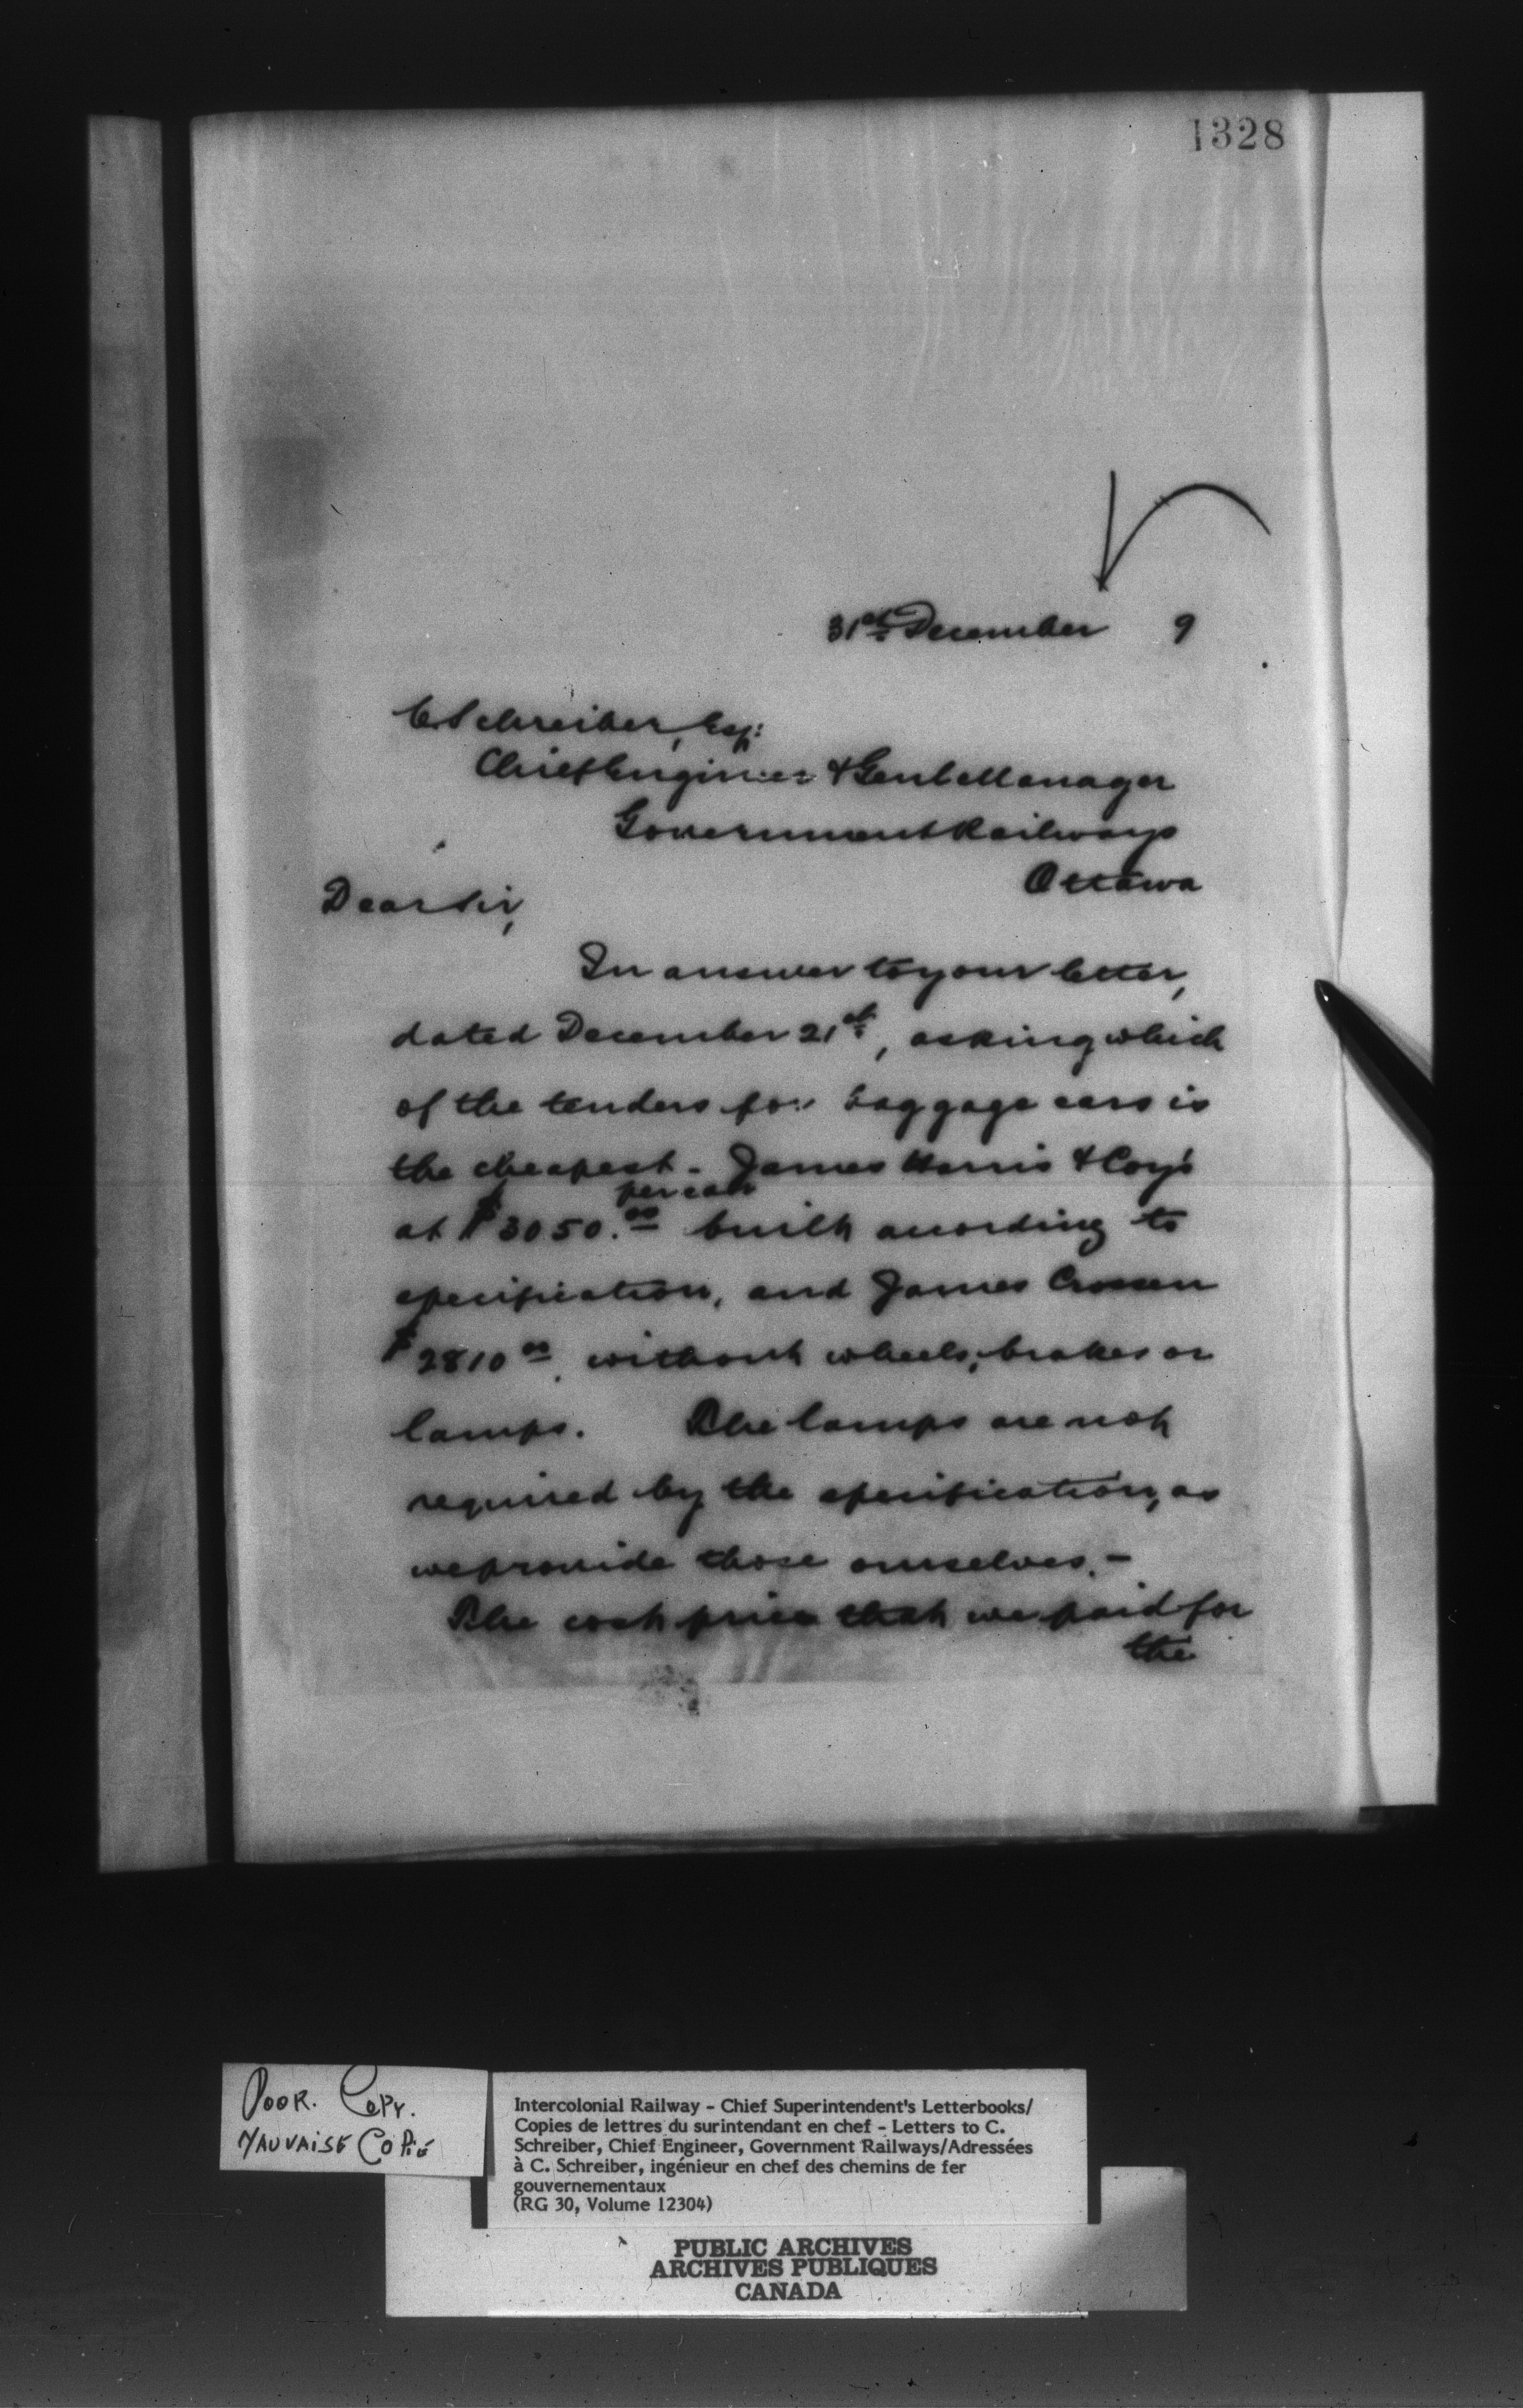 1328
31st December 9
C. Schreiber, Esq:
Chief Engineer & Genl Manager
Government Railways
Ottawa
Dear Sir,
In answer to your letter,
dated December 21st, asking which
of the tenders for baggage cars is
the cheapest - James Harris & Coy's
per car
at $3050.00 built according to
specification, and James Crossen
$2810 00, without wheels, brakes or
lamps. The lamps are not
required by the specification, as
we provide those ourselves. -
The cash price that we paid for
the
POOR. COPY.
MAUVAISE COPIE
Intercolonial Railway - Chief Superintendent's Letterbooks/
Copies de lettres du surintendant en chef - Letters to C.
Schreiber, Chief Engineer, Government Railways/Adressées
à C. Schreiber, ingénieur en chef des chemins de fer
gouvernementaux
(RG 30, Volume 12304)
PUBLIC ARCHIVES
ARCHIVES PUBLIQUES
CANADA